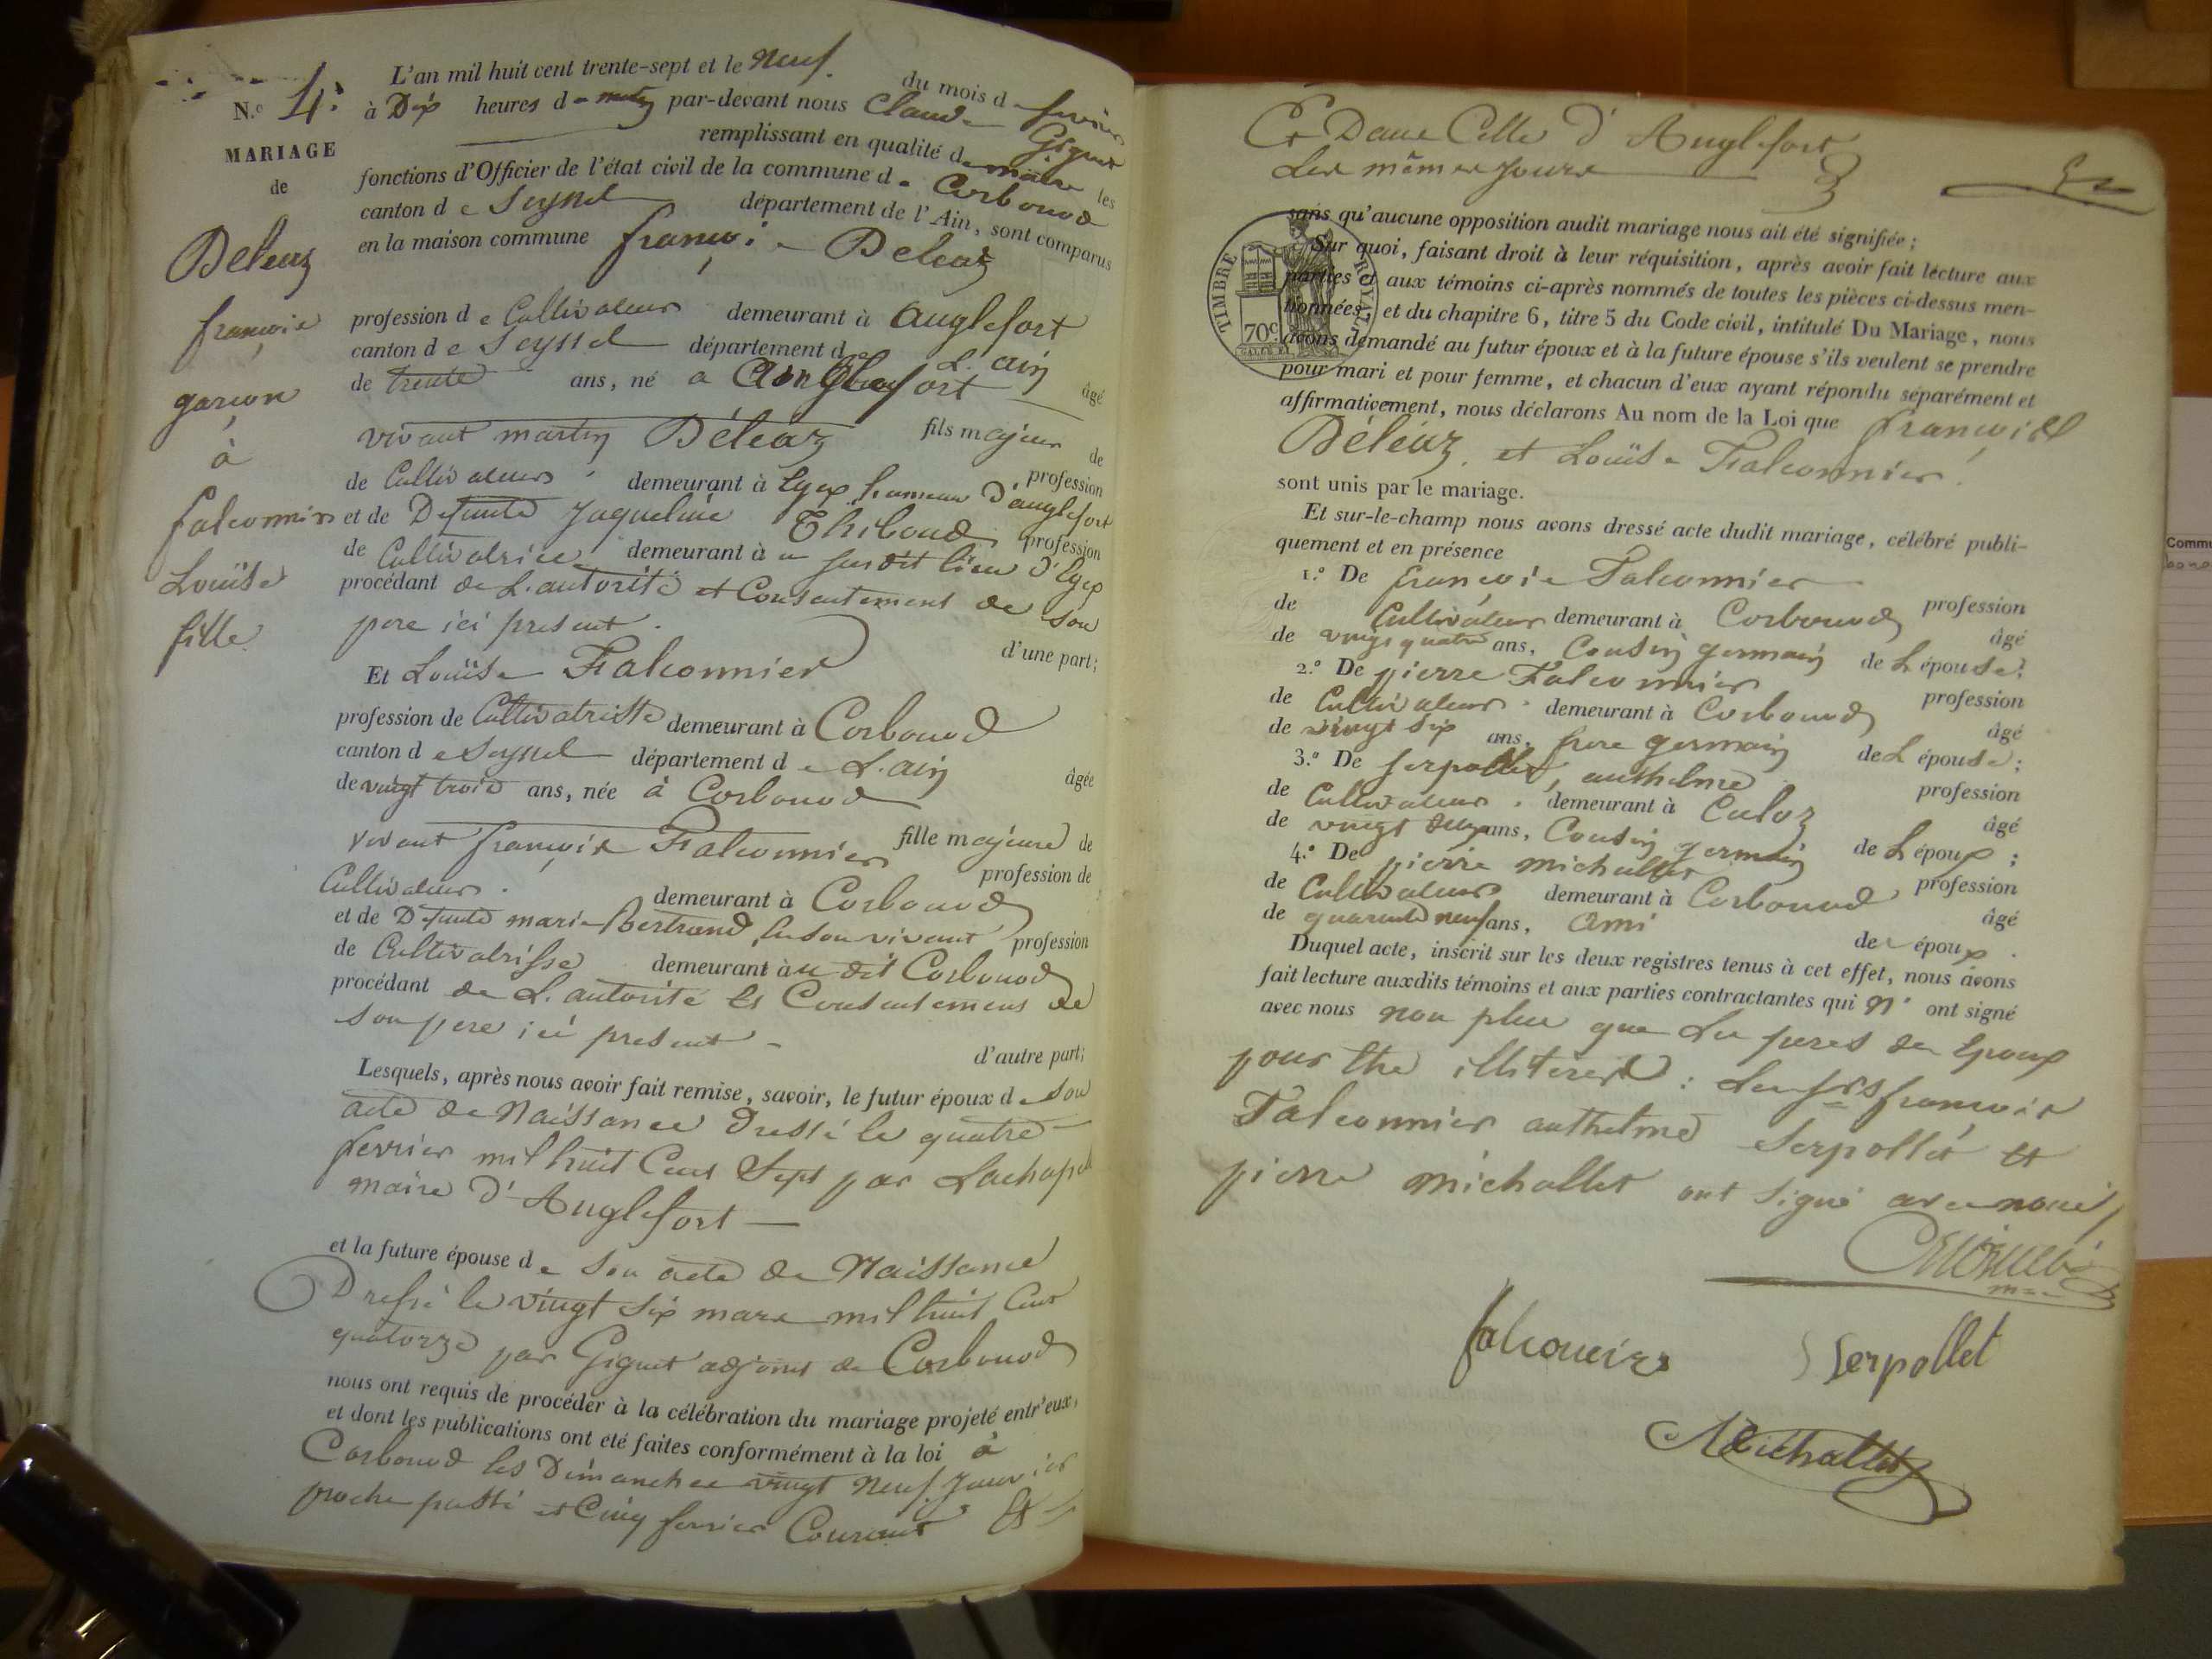 N.º 4.
MARIAGE
de
Deléaz
françois
garçon
à
falconnier
Louïse
fille
L'an mil huit cent trente-sept et le neuf du mois de fevrier
à Dix heures du matin par-devant nous Claude Giguet
remplissant en qualité de maire les
fonctions d'Officier de l'état civil de la commune de Corbonod
canton de Seyssel département de l'Ain, sont comparus
en la maison commune françois Deléaz
profession de Cultivateur demeurant à anglefort
canton de Seyssel département de L'ain âgé
de trente ans, né a Anglefort
fils majeur de
vivant martin Déléaz profession
de Cultivateur demeurant à hameau d'anglefort
et de Defunte Jaqueline Thiboud profession
de Cultivatrice demeurant à u susdit lieu
procédant de L'autorité et Consentement de son
pere ici present.
d'une part;
Et Louïse Falconnier
profession de Cultivatrisse demeurant à Corbonod
canton de Seyssel département de L'ain âgée
de vingt trois ans, née à Corbonod
fille majeure de
vivant françois Falconnier profession de
Cultivateur. demeurant à Corbonod
et de Defunte marie Bertrand, en son vivant profession
de Cultivatrisse demeurant à u dit Corbonod
procédant de L'autorité et Consentement de
son pere ici present
d'autre part;
Lesquels, après nous avoir fait remise, savoir, le futur époux de son
acte de Naissance Dressé le quatre
fevrier mil huit Cent Sept par Lachapel
maire d'Anglefort
et la future épouse de son acte de Naissance
Dressé le vingt six mars mil huit Cent
quatorze par Giguet adjoint de Corbonod
nous ont requis de procéder à la célébration du mariage projeté entr'eux,
et dont les publications ont été faites conformément à la loi à
Corbonod les Dimanches vingt Neuf Janvier
proche passé et Cinq fevrier Courant
Et Dans Celle d'Anglefort
Les mêmes jours
TIMBRE ROYAL
70c.
sans qu'aucune opposition audit mariage nous ait été signifiée;
Sur quoi, faisant droit à leur réquisition, après avoir fait lecture aux
parties et aux témoins ci-après nommés de toutes les pièces ci-dessus men-
tionnées, et du chapitre 6, titre 5 du Code civil, intitulé Du Mariage, nous
avons demandé au futur époux et à la future épouse s'ils veulent se prendre
pour mari et pour femme, et chacun d'eux ayant répondu séparément et
affirmativement, nous déclarons Au nom de la Loi que françois
Déléaz, et Louïse Falconnier
sont unis par le mariage.
Et sur-le-champ nous avons dressé acte dudit mariage, célébré publi-
quement et en présence
1.º De françois Falconnier profession
de Cultivateur demeurant à Corbonod âgé
de vingt quatre ans, Cousin germain de L'épouse;
2.º De pierre Falconnier profession
de Cultivateur demeurant à Corbonod âgé
de vingt six ans, frere germain de L'épouse;
3.º De serpollet, anthelme profession
de Cultivateur demeurant à Culoz âgé
de vingt ans, Cousin germain de L'époux;
4.º De pierre michallet profession
de Cultivateur demeurant à Corbonod âgé
de quarante neuf ans, ami de l'époux.
Duquel acte, inscrit sur les deux registres tenus à cet effet, nous avons
fait lecture auxdits témoins et aux parties contractantes qui n'ont signé
avec nous non plus que les peres des epoux
pour être illiterés: Les srs françois
Falconnier anthelme Serpollet et
pierre michallet ont signé avec nous
falconnier
Serpollet
Michallet
Commu